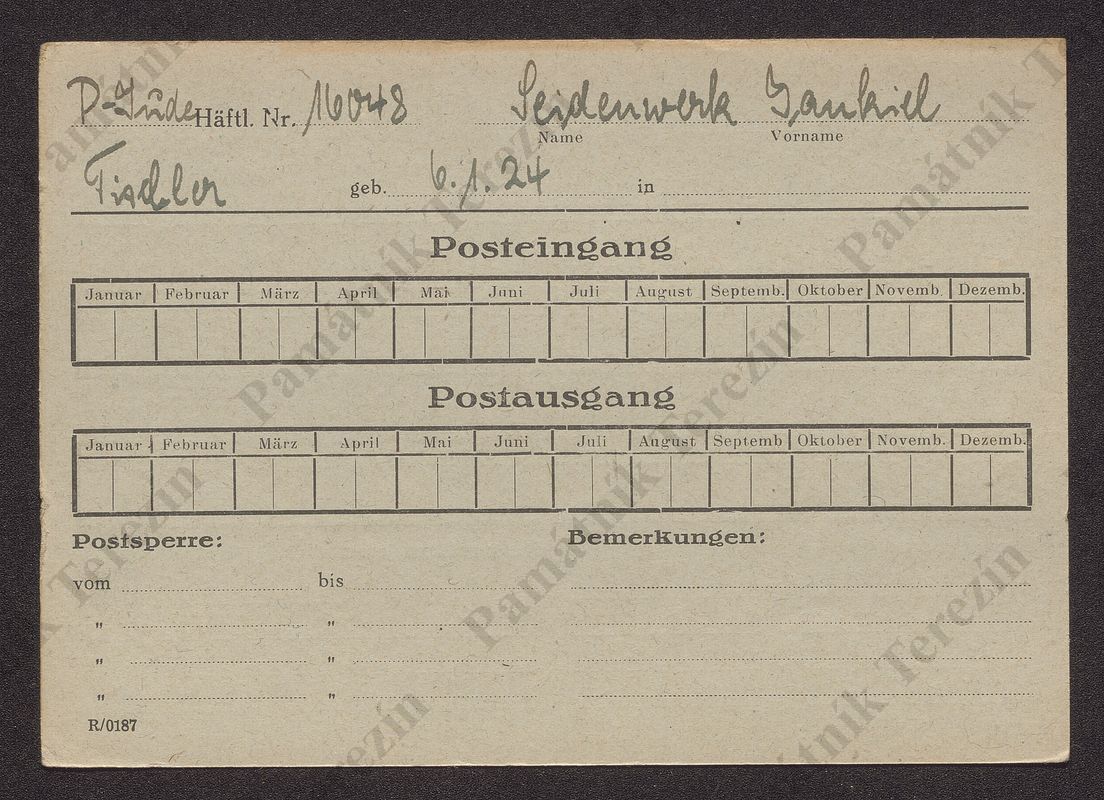 P-Jude Häftl. Nr. 16048 Seidenwerk Jankiel
Name Vorname
Tischler geb. 6.1.24 in
Posteingang
Januar Februar März April Mai Juni Juli August Septemb. Oktober Novemb. Dezemb.
Postausgang
Januar Februar März April Mai Juni Juli August Septemb Oktober Novemb. Dezemb.
Postsperre: Bemerkungen:
vom bis
" "
" "
" "
R/0187
Památník Terezín